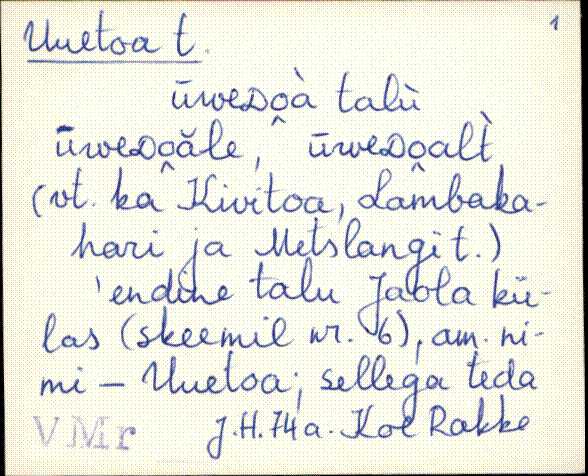 1
Uuetoa t.
ūweᴅo̭à talù
ūweᴅo̭ăle, ūweᴅo̭alt̀
(vt. ka Kivitoa, Lambaka-
hari ja Metslangi t.)
'endine talu Jaola kü-
las (skeemil nr. 6), am. ni-
mi – Uuetoa; sellega teda
VMr J.H. 74 a. Koe Rakke